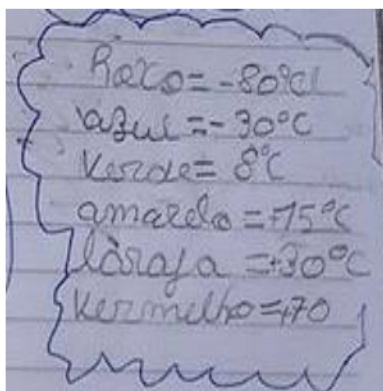 Roxo=-80°C
azul=-30°C
Verde=8°C
amarelo=+15°C
láraja=+30°C
Vermelho=+70